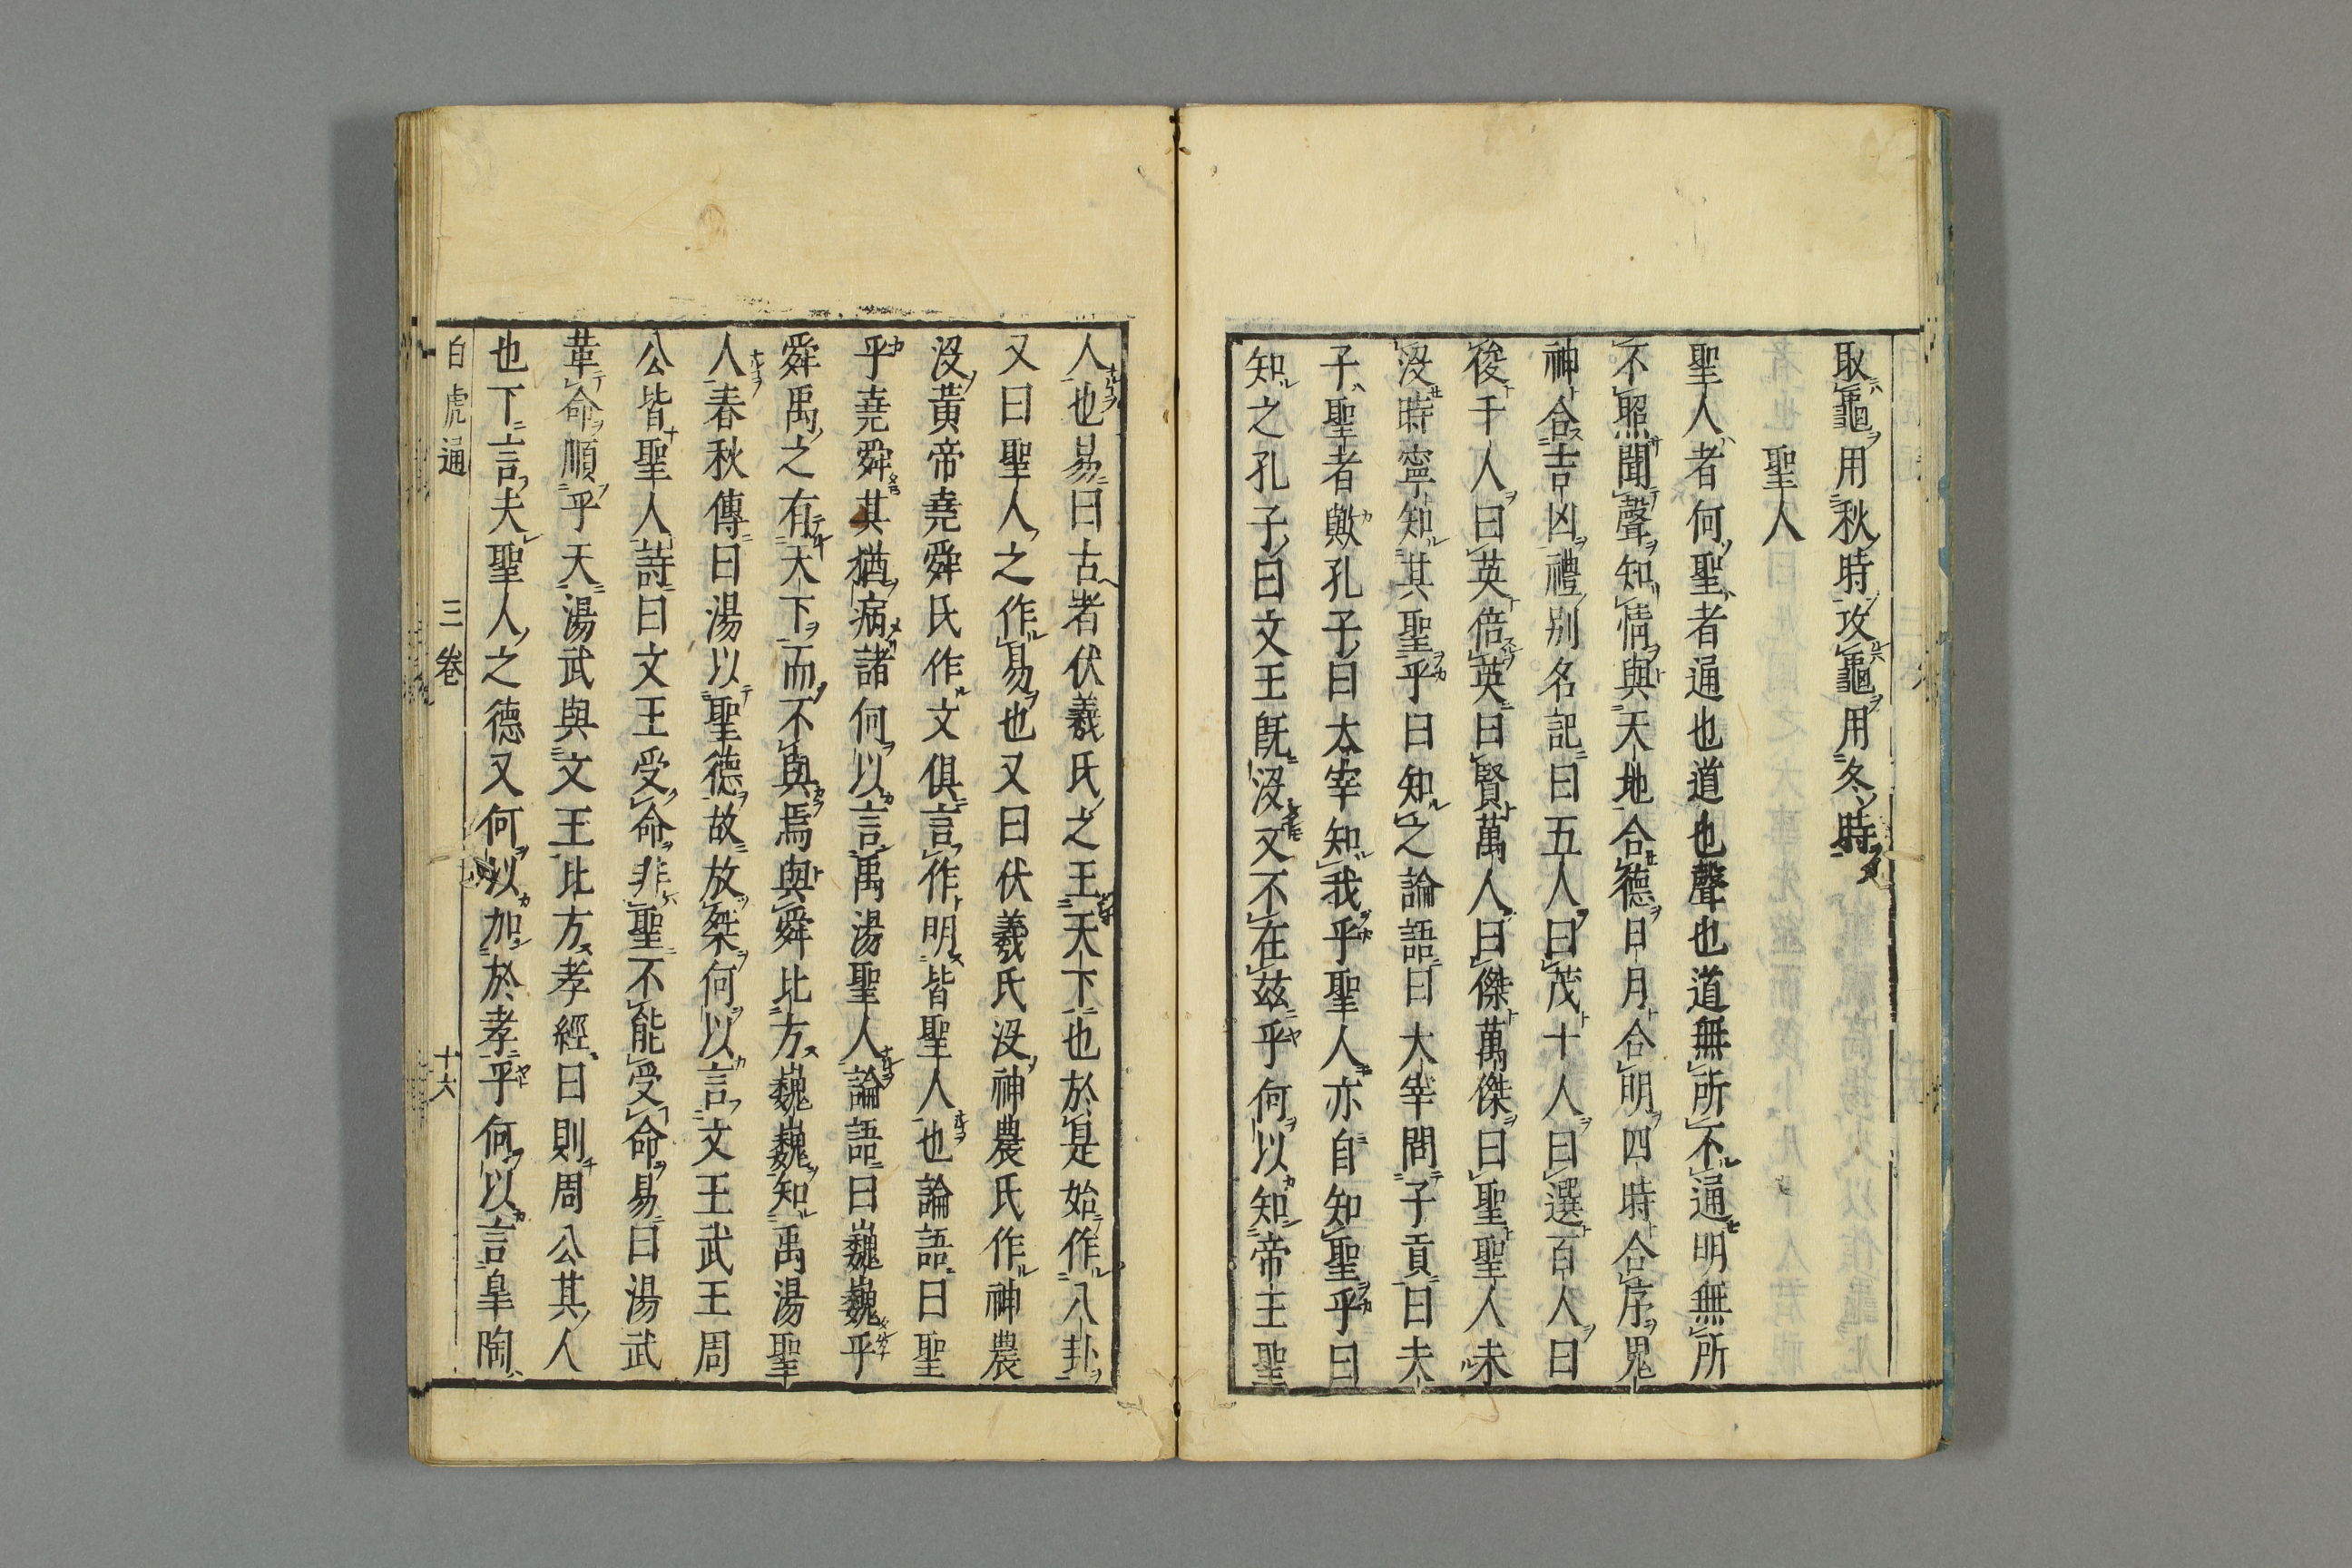 取龜用秋時攻龜用冬時
聖人
聖人者何聖者通也道也聲也道無所不通明無所
不照聞聲知情與天地合德日月合明四時合序鬼
神合吉凶禮別名記曰五人曰茂十人曰選百人曰
俊千人曰英倍英曰賢萬人曰傑萬傑曰聖聖人未
没時寧知其聖乎曰知之論語曰大宰問子貢曰夫
子聖者歟孔子曰太宰知我乎聖人亦自知聖乎曰
知之孔子曰文王既没文不在兹乎何以知帝王聖
人也易曰古者伏羲氏之王天下也於是始作八卦
又曰聖人之作易也又曰伏羲氏没神農氏作神農
没黃帝堯舜氏作文俱言作明皆聖人也論語曰聖
乎堯舜其猶病諸何以言禹湯聖人論語曰巍巍乎
舜禹之有天下而不與焉與舜比方巍巍知禹湯聖
人春秋傳曰湯以聖德故放桀何以言文王武王周
公皆聖人詩曰文王受命非聖不能受命易曰湯武
革命順乎天湯武與文王比方孝經曰則周公其人
也下言夫聖人之德又何以加於孝乎何以言皐陶
白虎通 三卷 十六